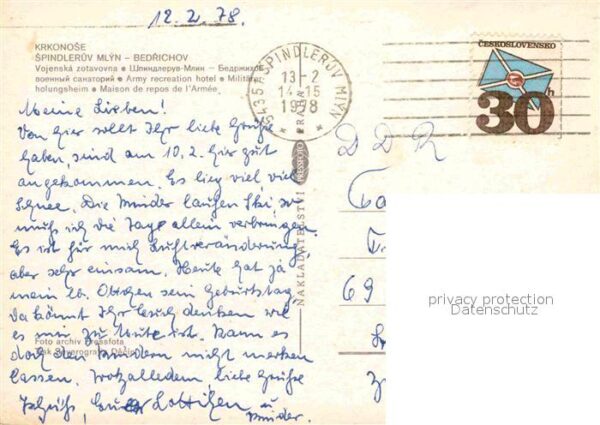 12.2.78.
KRKONOŠE
ŠPINDLERŮV MLÝN – BEDŘICHOV
Vojenská zotavovna – Шпиндлерув-Млин – Бедржихов
военный санаторий – Army recreation hotel – Militär-
holungsheim – Maison de repos de l'Armée
543 51 ŠPINDLERŮV MLÝN
13-2
14-15
1978
ČESKOSLOVENSKO
30h
Meine Lieben!
Von hier sollt Ihr liebe Grüße
haben, sind am 10.2. hier gut
angekommen. Es liegt viel, viel
Schnee. Die Kinder laufen Ski, so
muß ich die Tage allein verbringen.
Es ist für mich Luftveränderung,
aber sehr einsam. Heute hat ja
mein lb. Geburtstag
Da könnt Ihr Euch denken wie
es mir zu Mute ist. Kann es
doch den Kindern nicht merken
lassen. Trotzalledem liebe Grüße
Lottchen u
Kinder.
Foto archiv Pressfoto
NAKLADATELSTVÍ PRESSFOTO PRAHA
DDR
69
privacy protection
Datenschutz